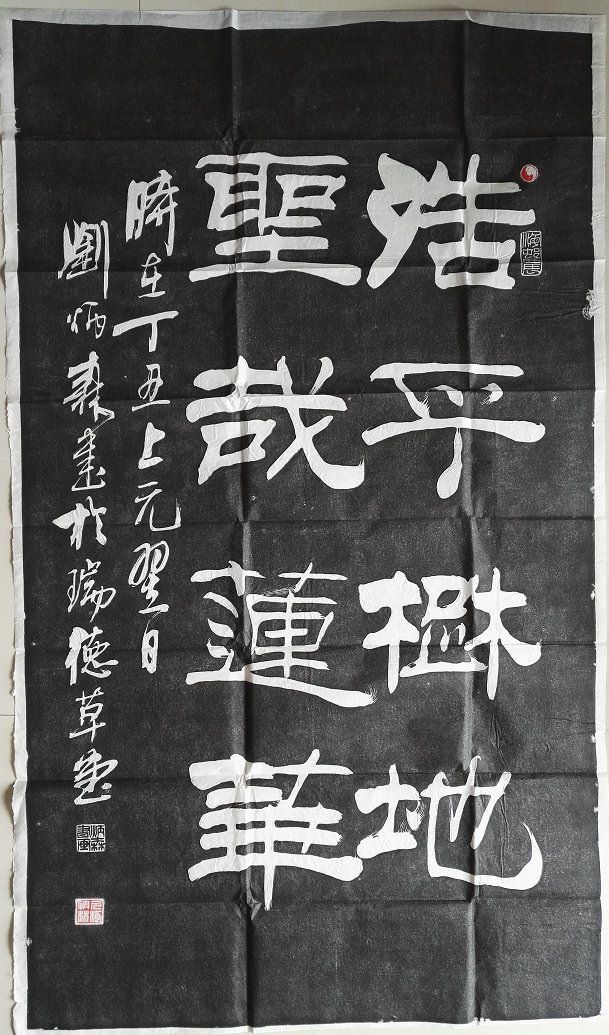 浩乎地
聖哉蓮華
時在丁丑上元翌日
劉炳森書於瑞德草堂